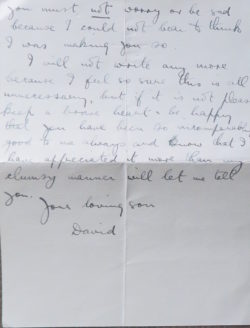 you must not worry or be sad
because I could not bear to think
I was making you so.
I will not write any more
because I feel so sure this is all
unnecessary, but if it is not please
keep a brave heart & be happy
you have been so incomparably
good to me always and know that I
have appreciated it more than my
clumsy manner will let me tell
you.
Your loving son
David